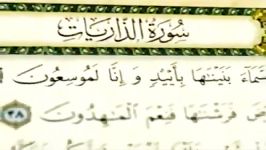 سُورَةُ الذَّارِيَاتِ
سَّمَآءَ بَنَيْنَٰهَا بِأَيْيْدٍ وَ إِنَّا لَمُوسِعُونَ
ضَ فَرَشْنَٰهَا فَنِعْمَ الْمَٰهِدُونَ ٤٨